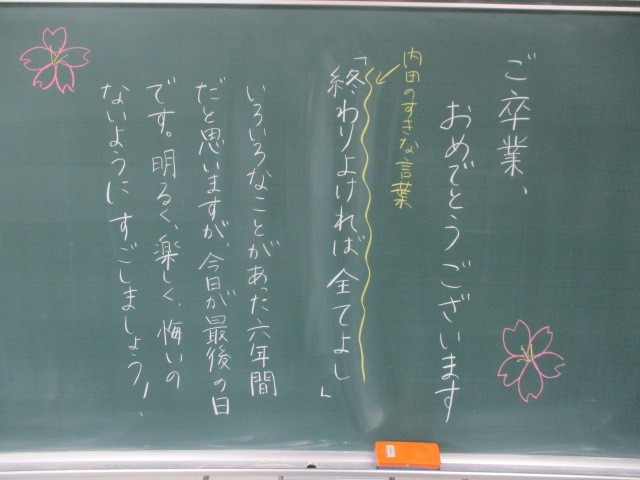 ご卒業、
おめでとうございます
内田のすきな言葉
「終わりよければ全てよし」
いろいろなことがあった六年間
だと思いますが、今日が最後の日
です。明るく、楽しく、悔いの
ないようにすごしましょう!